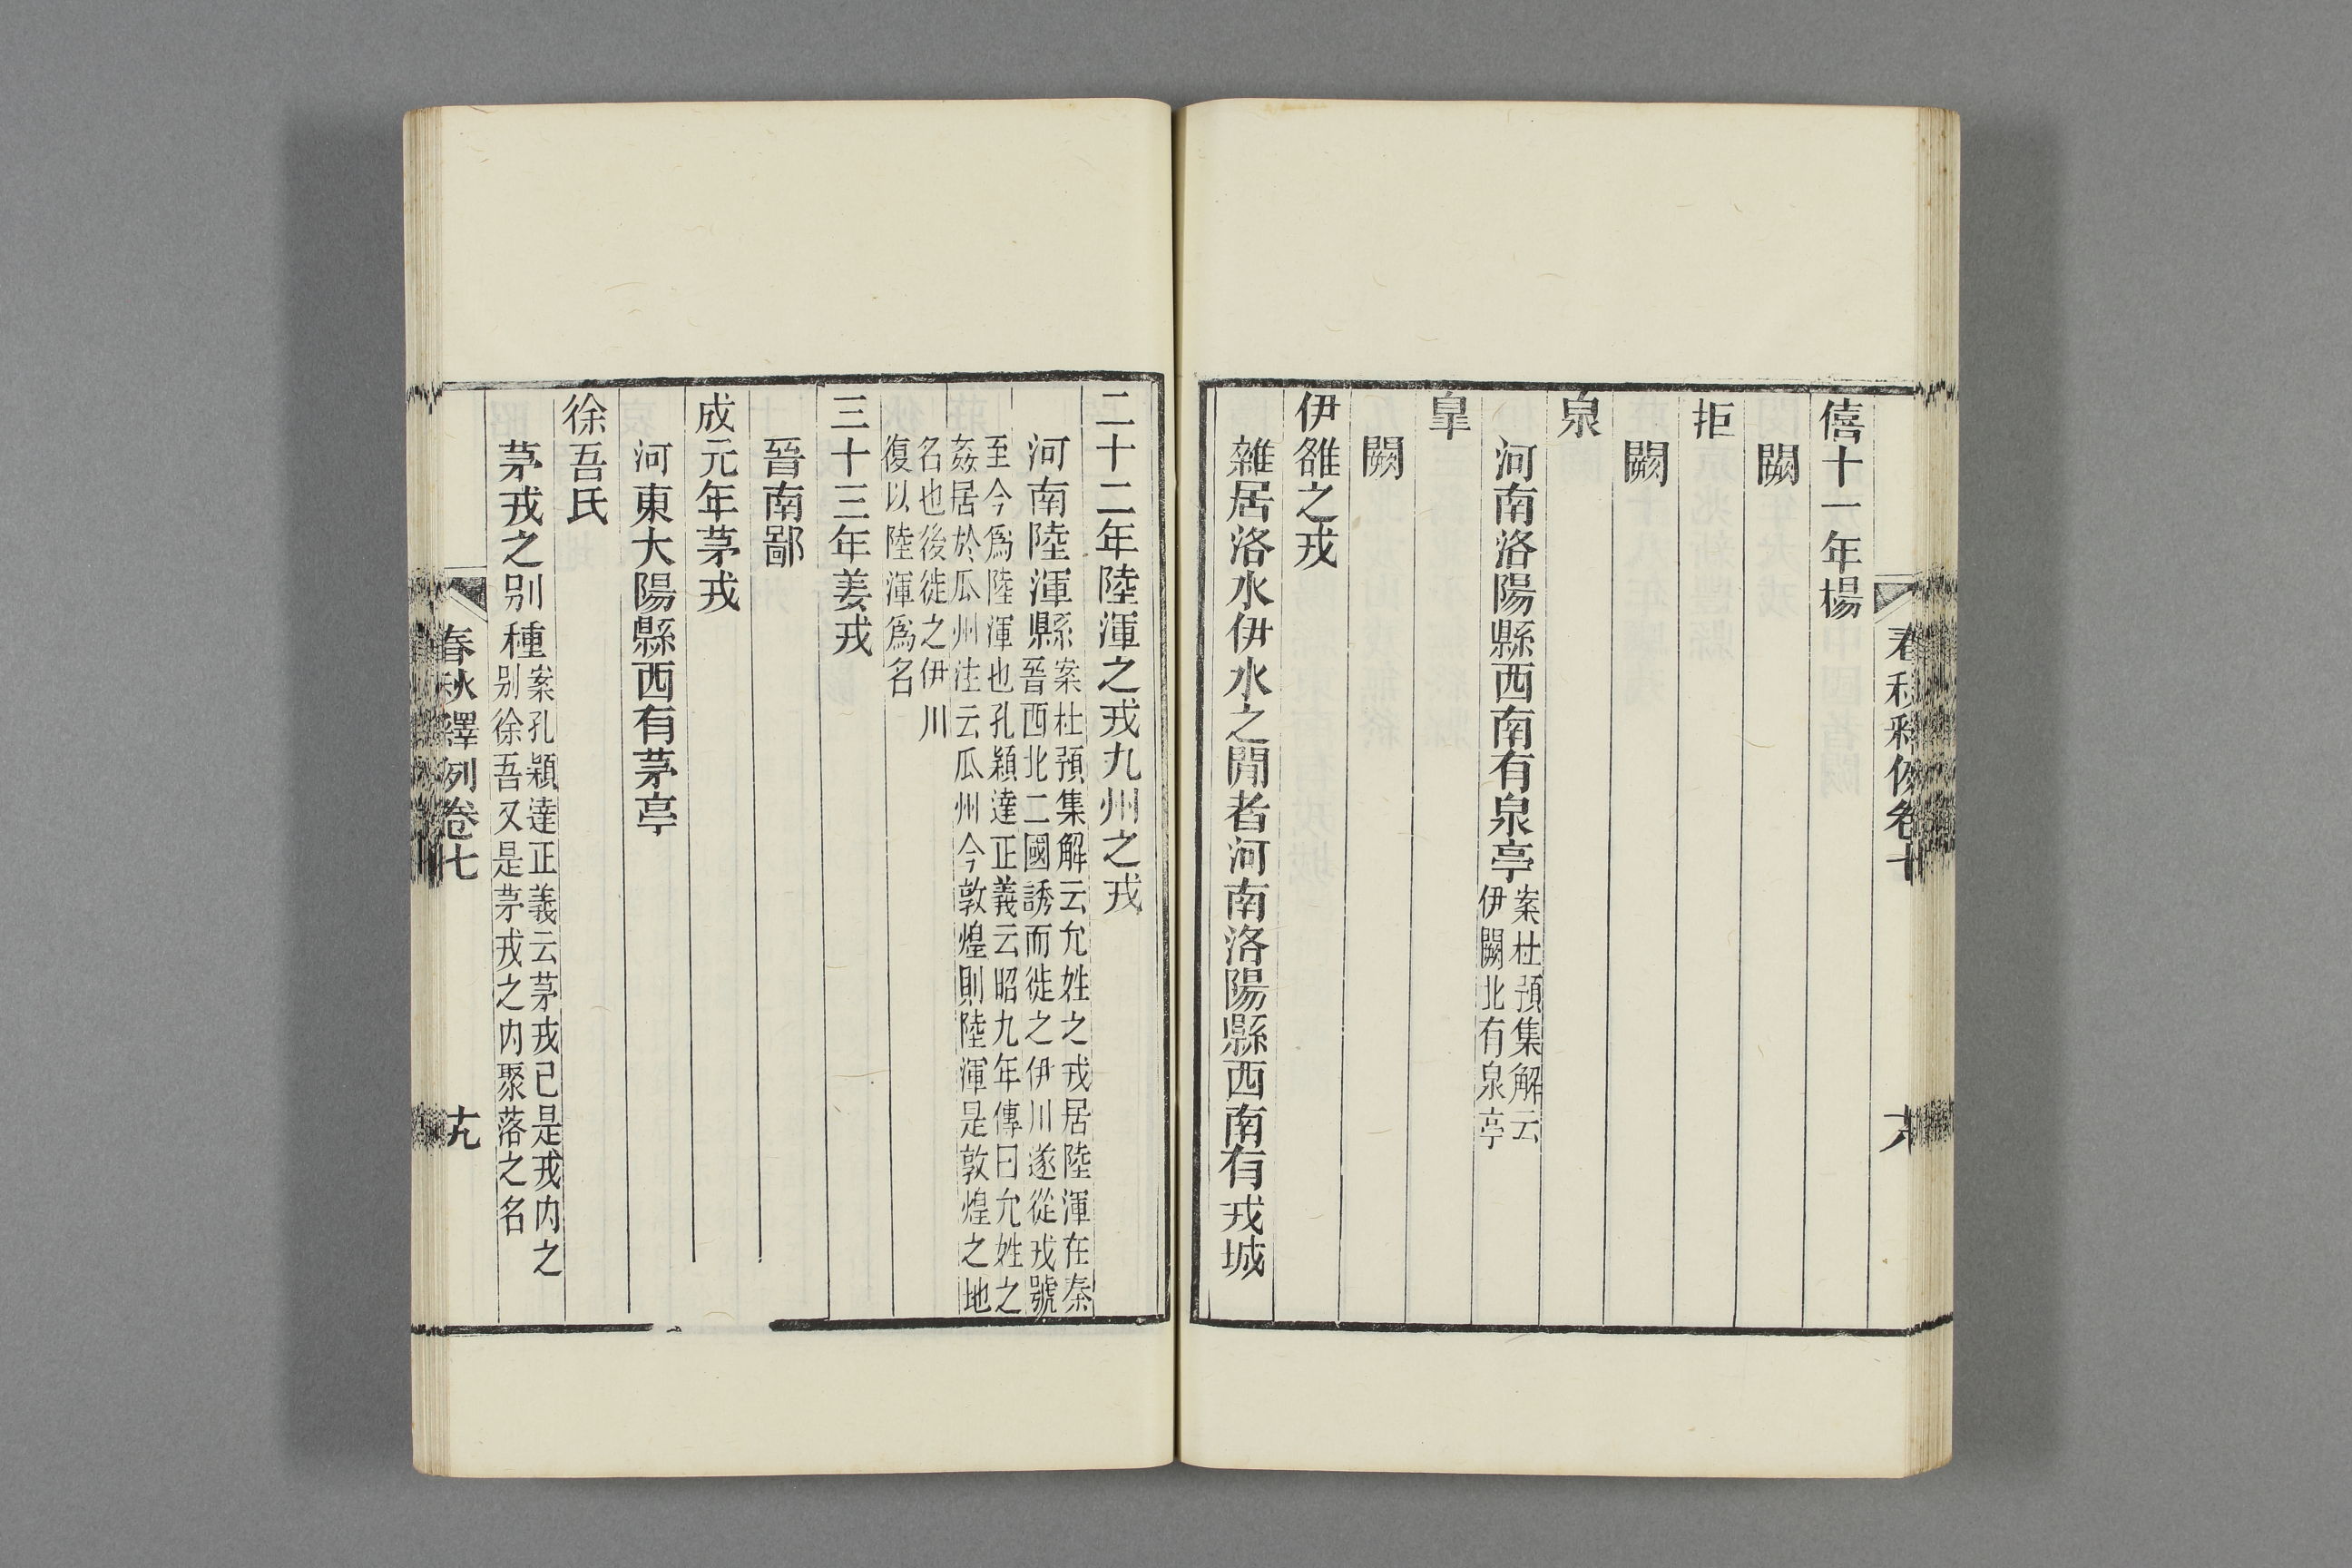 僖十一年楊
闕
拒
闕
泉
河南洛陽縣西南有泉亭案杜預集解云伊闕北有泉亭
皐
闕
伊雒之戎
雜居洛水伊水之閒者河南洛陽縣西南有戎城
二十二年陸渾之戎九州之戎
河南陸渾縣案杜預集解云允姓之戎居陸渾在秦晉西北二國誘而徙之伊川遂從戎號
至今爲陸渾也孔穎達正義云昭九年傳曰允姓之姦居於瓜州注云瓜州今敦煌則陸渾是敦煌之地
名也後徙之伊川復以陸渾爲名
三十三年姜戎
晉南鄙
成元年茅戎
河東大陽縣西有茅亭
徐吾氏
茅戎之別種案孔穎達正義云茅戎已是戎內之別徐吾又是茅戎之內聚落之名
春秋釋例卷七
十九